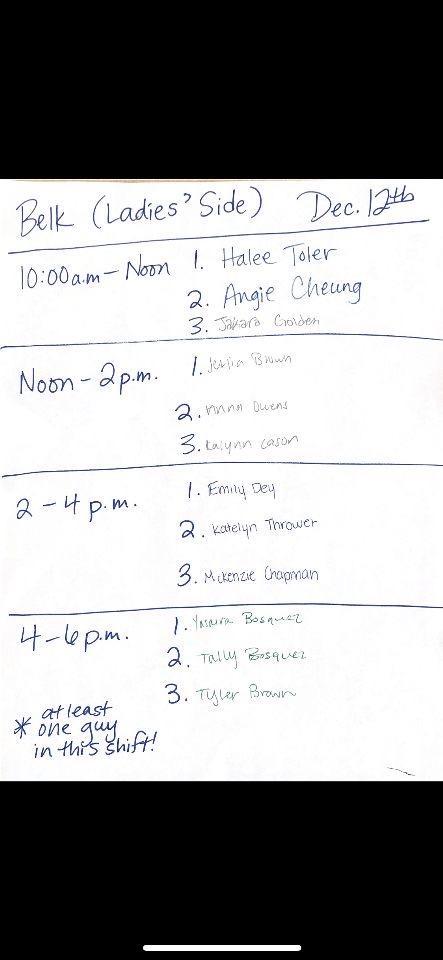 Belk (Ladies' Side) Dec. 12th
10:00 a.m - Noon 1. Halee Toler
2. Angie Cheung
3. Golden
Noon - 2 p.m. 1. Julia Brown
2. Owens
3. Kalynn Cason
2 - 4 p.m. 1. Emily Dey
2. Katelyn Thrower
3. McKenzie Chapman
4 - 6 p.m. 1. Bosquez
2. Tally Bosquez
3. Tyler Brown
* at least
one guy
in this shift!